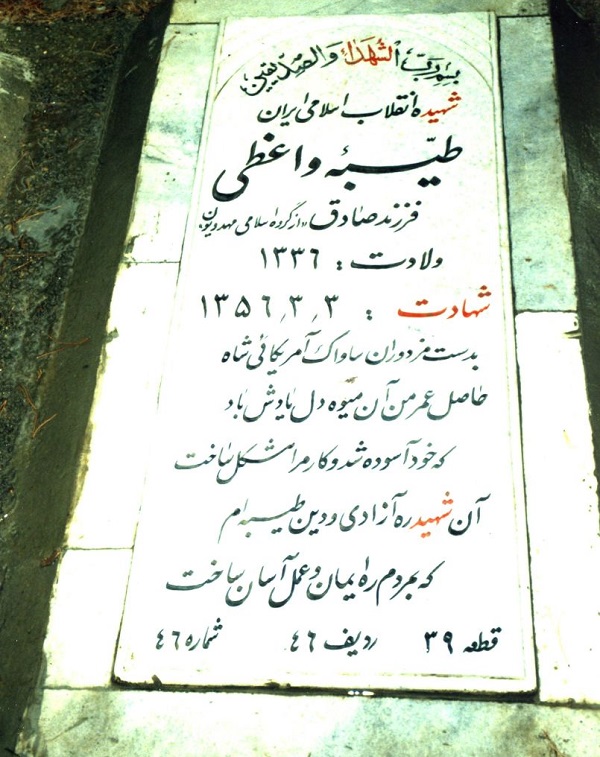 بسم رب الشهداء والصدیقین
شهیده انقلاب اسلامی ایران
طیّبهٔ واعظی
فرزند صادق «از گروه اسلامی مهدویون»
ولادت : ۱۳۳۶
شهادت : ۳٫۳٫۱۳۵۶
بدست مزدوران ساواک آمریکائی شاه
حاصل عمر من آن میوه دل یادش باد
که خود آسوده شد و کار مرا مشکل ساخت
آن شهید ره آزادی و دین طیبه ام
که بمردم ره ایمان و عمل آسان ساخت
قطعه ۳۹ ردیف ۴۶ شماره ۴۶